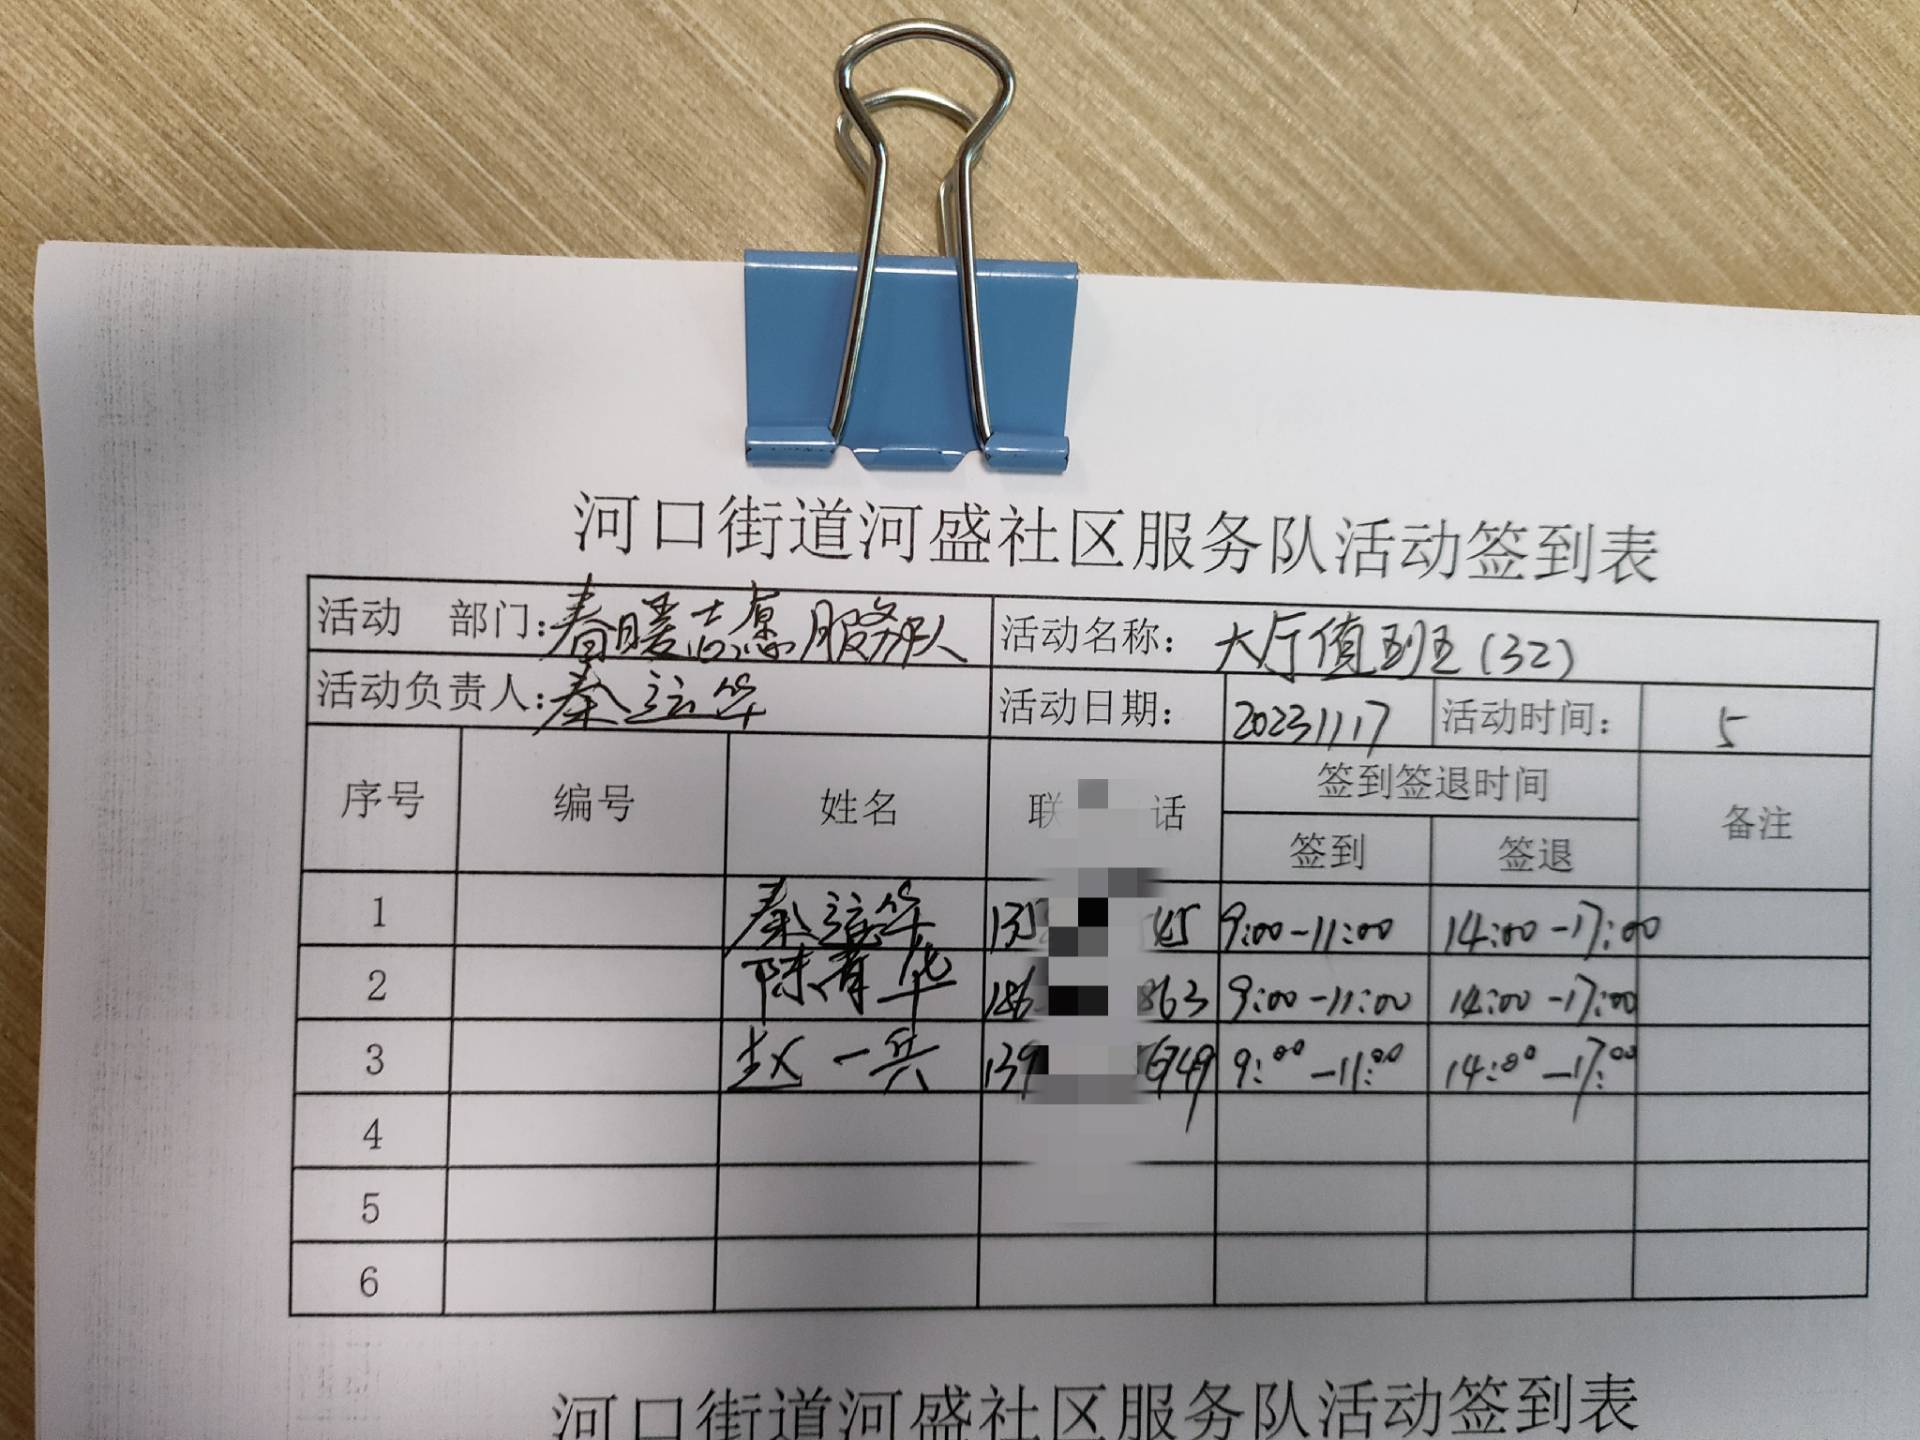 河口街道河盛社区服务队活动签到表
活动 部门:春暖志愿服务队 活动名称: 大厅值班(32)
活动负责人:秦运华 活动日期: 20231117 活动时间: 5
序号 编号 姓名 联 话 签到签退时间 备注
签到 签退
1 秦运华 135 45 9:00-11:00 14:00-17:00
2 陈青华 186 863 9:00-11:00 14:00-17:00
3 赵一兵 139 6749 9:00-11:00 14:00-17:00
4
5
6
河口街道河盛社区服务队活动签到表